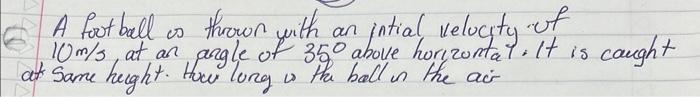 A football is thrown with an intial velocity of
10m/s at an angle of 35° above horizontal. It is caught
at Same height. How long is the ball in the air